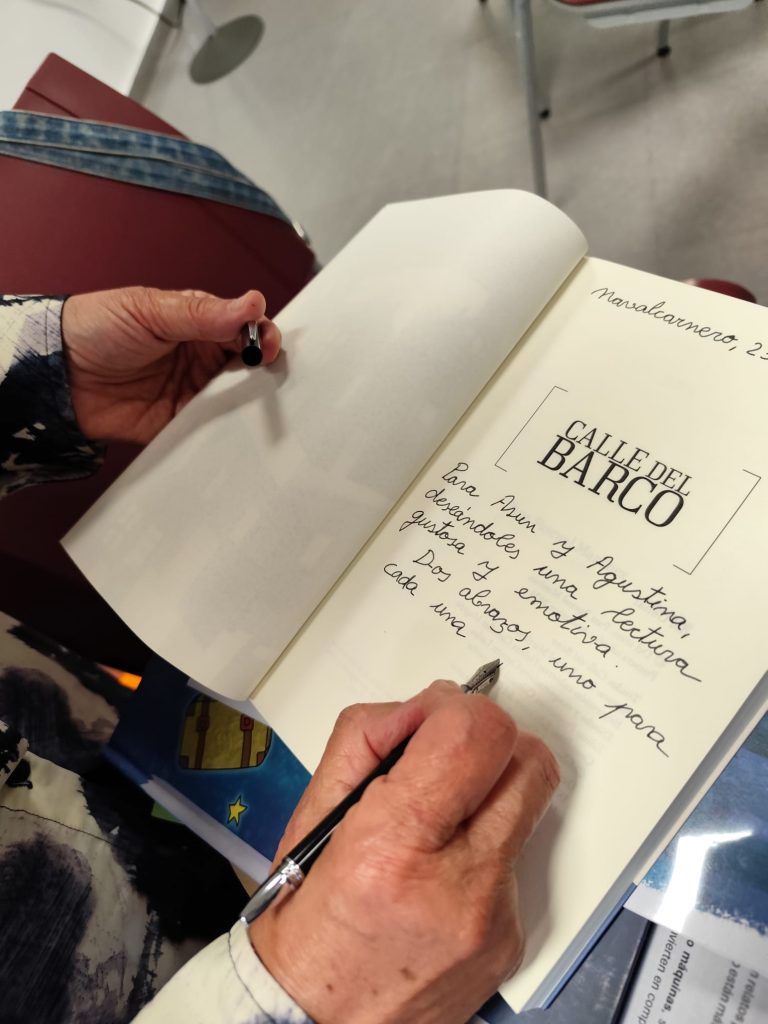 Navalcarnero, 23
CALLE DEL
BARCO
Para Asun y Agustina,
deseándoles una lectura
gustosa y emotiva.
Dos abrazos, uno para
cada una
n relatos
o están má
o máquinas.
vierten en comp